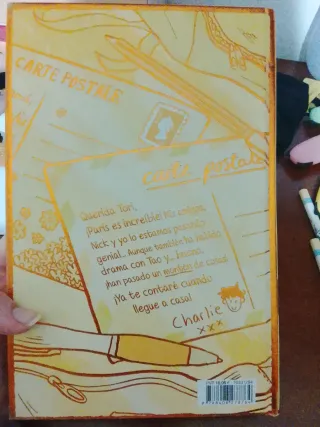 CARTE POSTALE
carte postal
Querida Tori,
¡París es increíble! Mis amigos,
Nick y yo lo estamos pasando
genial... Aunque también ha habido
drama con Tao y... ¡bueno,
¡han pasado un montón de cosas!
¡Ya te contaré cuando
llegue a casa!
Charlie
xxx